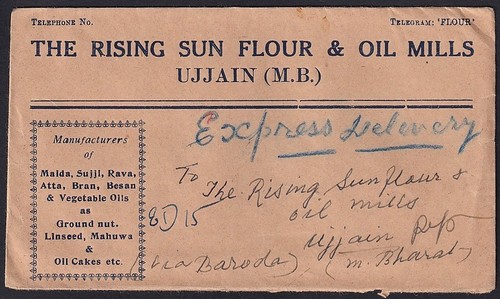 TELEPHONE NO.
TELEGRAM: 'FLOUR'
THE RISING SUN FLOUR & OIL MILLS
UJJAIN (M.B.)
Express Delivery
Manufacturers
of
Maida, Sujji, Rava,
Atta, Bran, Besan
& Vegetable Oils
as
Ground nut,
Linseed, Mahuwa
&
Oil Cakes etc.
To
The Rising Sun flour &
oil mills
Ujjain
(M. Bharat)
(via Baroda)